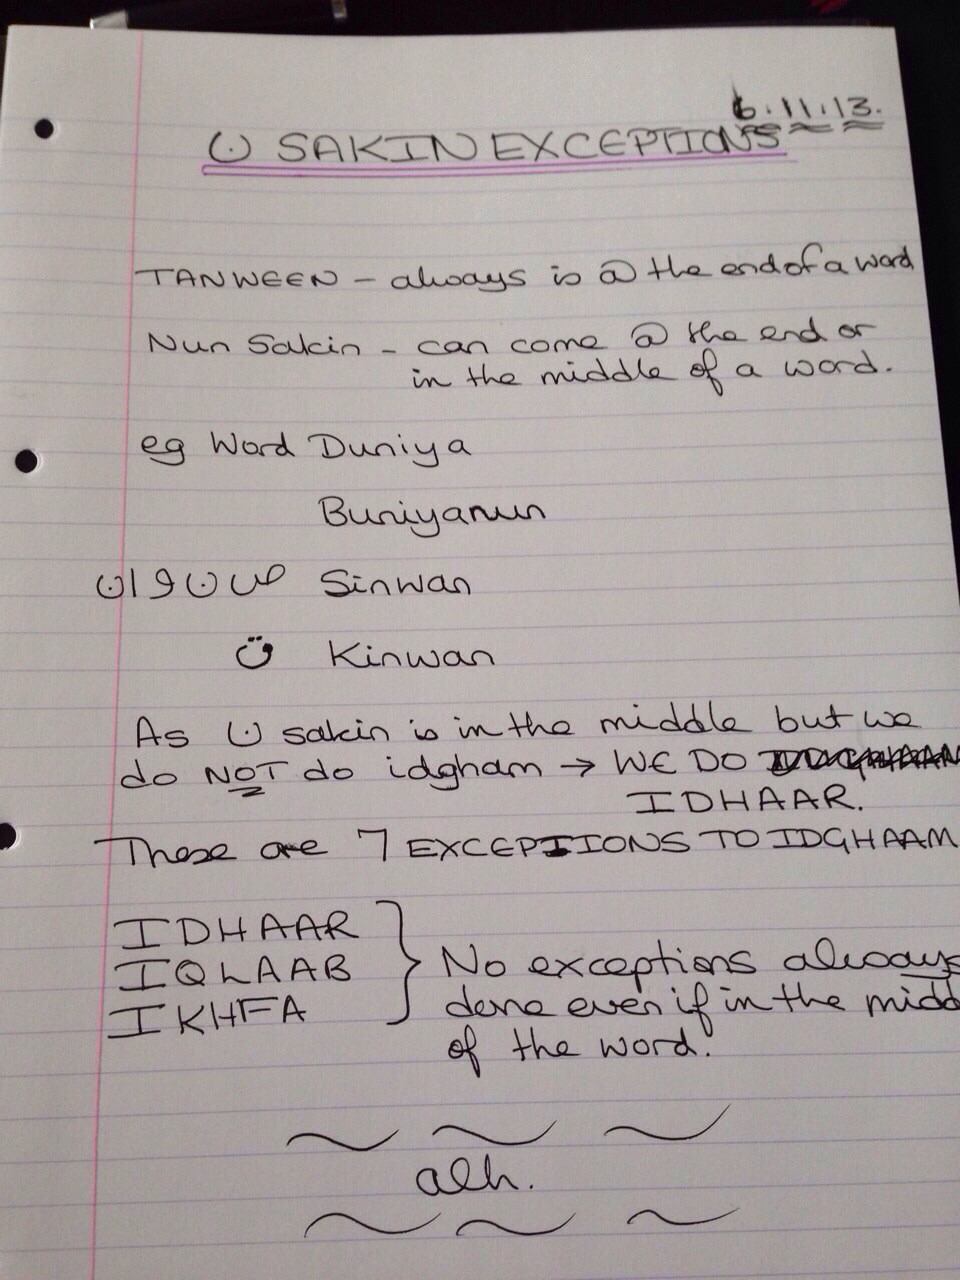 6.11.13.
ن SAKIN EXCEPTIONS
TANWEEN - always is @ the end of a word
Nun Sakin - can come @ the end or
in the middle of a word.
eg Word Duniya
Buniyanun
ص ن و ا ن Sinwan
ق Kinwan
As ن sakin is in the middle but we
do NOT do idgham → WE DO
IDHAAR.
These are 7 EXCEPTIONS TO IDGHAAM
IDHAAR
IQLAAB
IKHFA
No exceptions always
done even if in the midd
of the word.
alh.